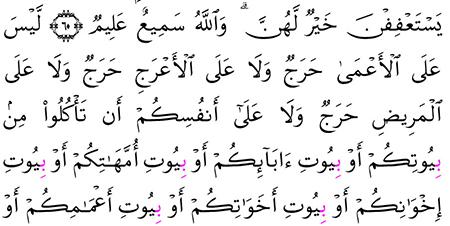 يَسۡتَعۡفِفۡنَ خَيۡرٞ لَّهُنَّۗ وَٱللَّهُ سَمِيعٌ عَلِيمٞ ۝٦٥ لَّيۡسَ
عَلَى ٱلۡأَعۡمَىٰ حَرَجٞ وَلَا عَلَى ٱلۡأَعۡرَجِ حَرَجٞ وَلَا عَلَى
ٱلۡمَرِيضِ حَرَجٞ وَلَا عَلَىٰٓ أَنفُسِكُمۡ أَن تَأۡكُلُواْ مِنۢ
بِيُوتِكُمۡ أَوۡ بِيُوتِ ءَابَآئِكُمۡ أَوۡ بِيُوتِ أُمَّهَٰتِكُمۡ أَوۡ بِيُوتِ
إِخۡوَٰنِكُمۡ أَوۡ بِيُوتِ أَخَوَٰتِكُمۡ أَوۡ بِيُوتِ أَعۡمَٰمِكُمۡ أَوۡ